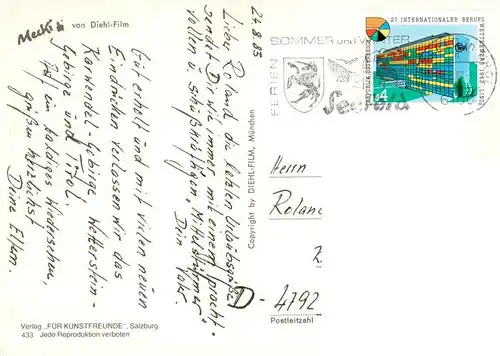 Mecki von Diehl-Film
24.8.83
Lieber Roland die letzten Urlaubsgrüße
sendet Dir wie immer mit einem pracht-
vollen u. schußkräftigen "Mittelstürmer"
Dein Vater.
Gut erholt und mit vielen neuen
Eindrücken verlassen wir das
Karwendel-Gebirge, Wetterstein-
Gebirge und Tirol.
Auf ein baldiges Wiedersehen,
grüßen herzlichst
Deine Eltern.
Verlag „FÜR KUNSTFREUNDE", Salzburg
433 Jede Reproduktion verboten
Copyright by DIEHL-FILM, München
FERIEN
SOMMER und WINTER
Seefeld
27. INTERNATIONALER BERUFS
WETTBEWERB 1983 LINZ
REPUBLIK ÖSTERREICH
S4
Herrn
Rolan
D-4792
Postleitzahl